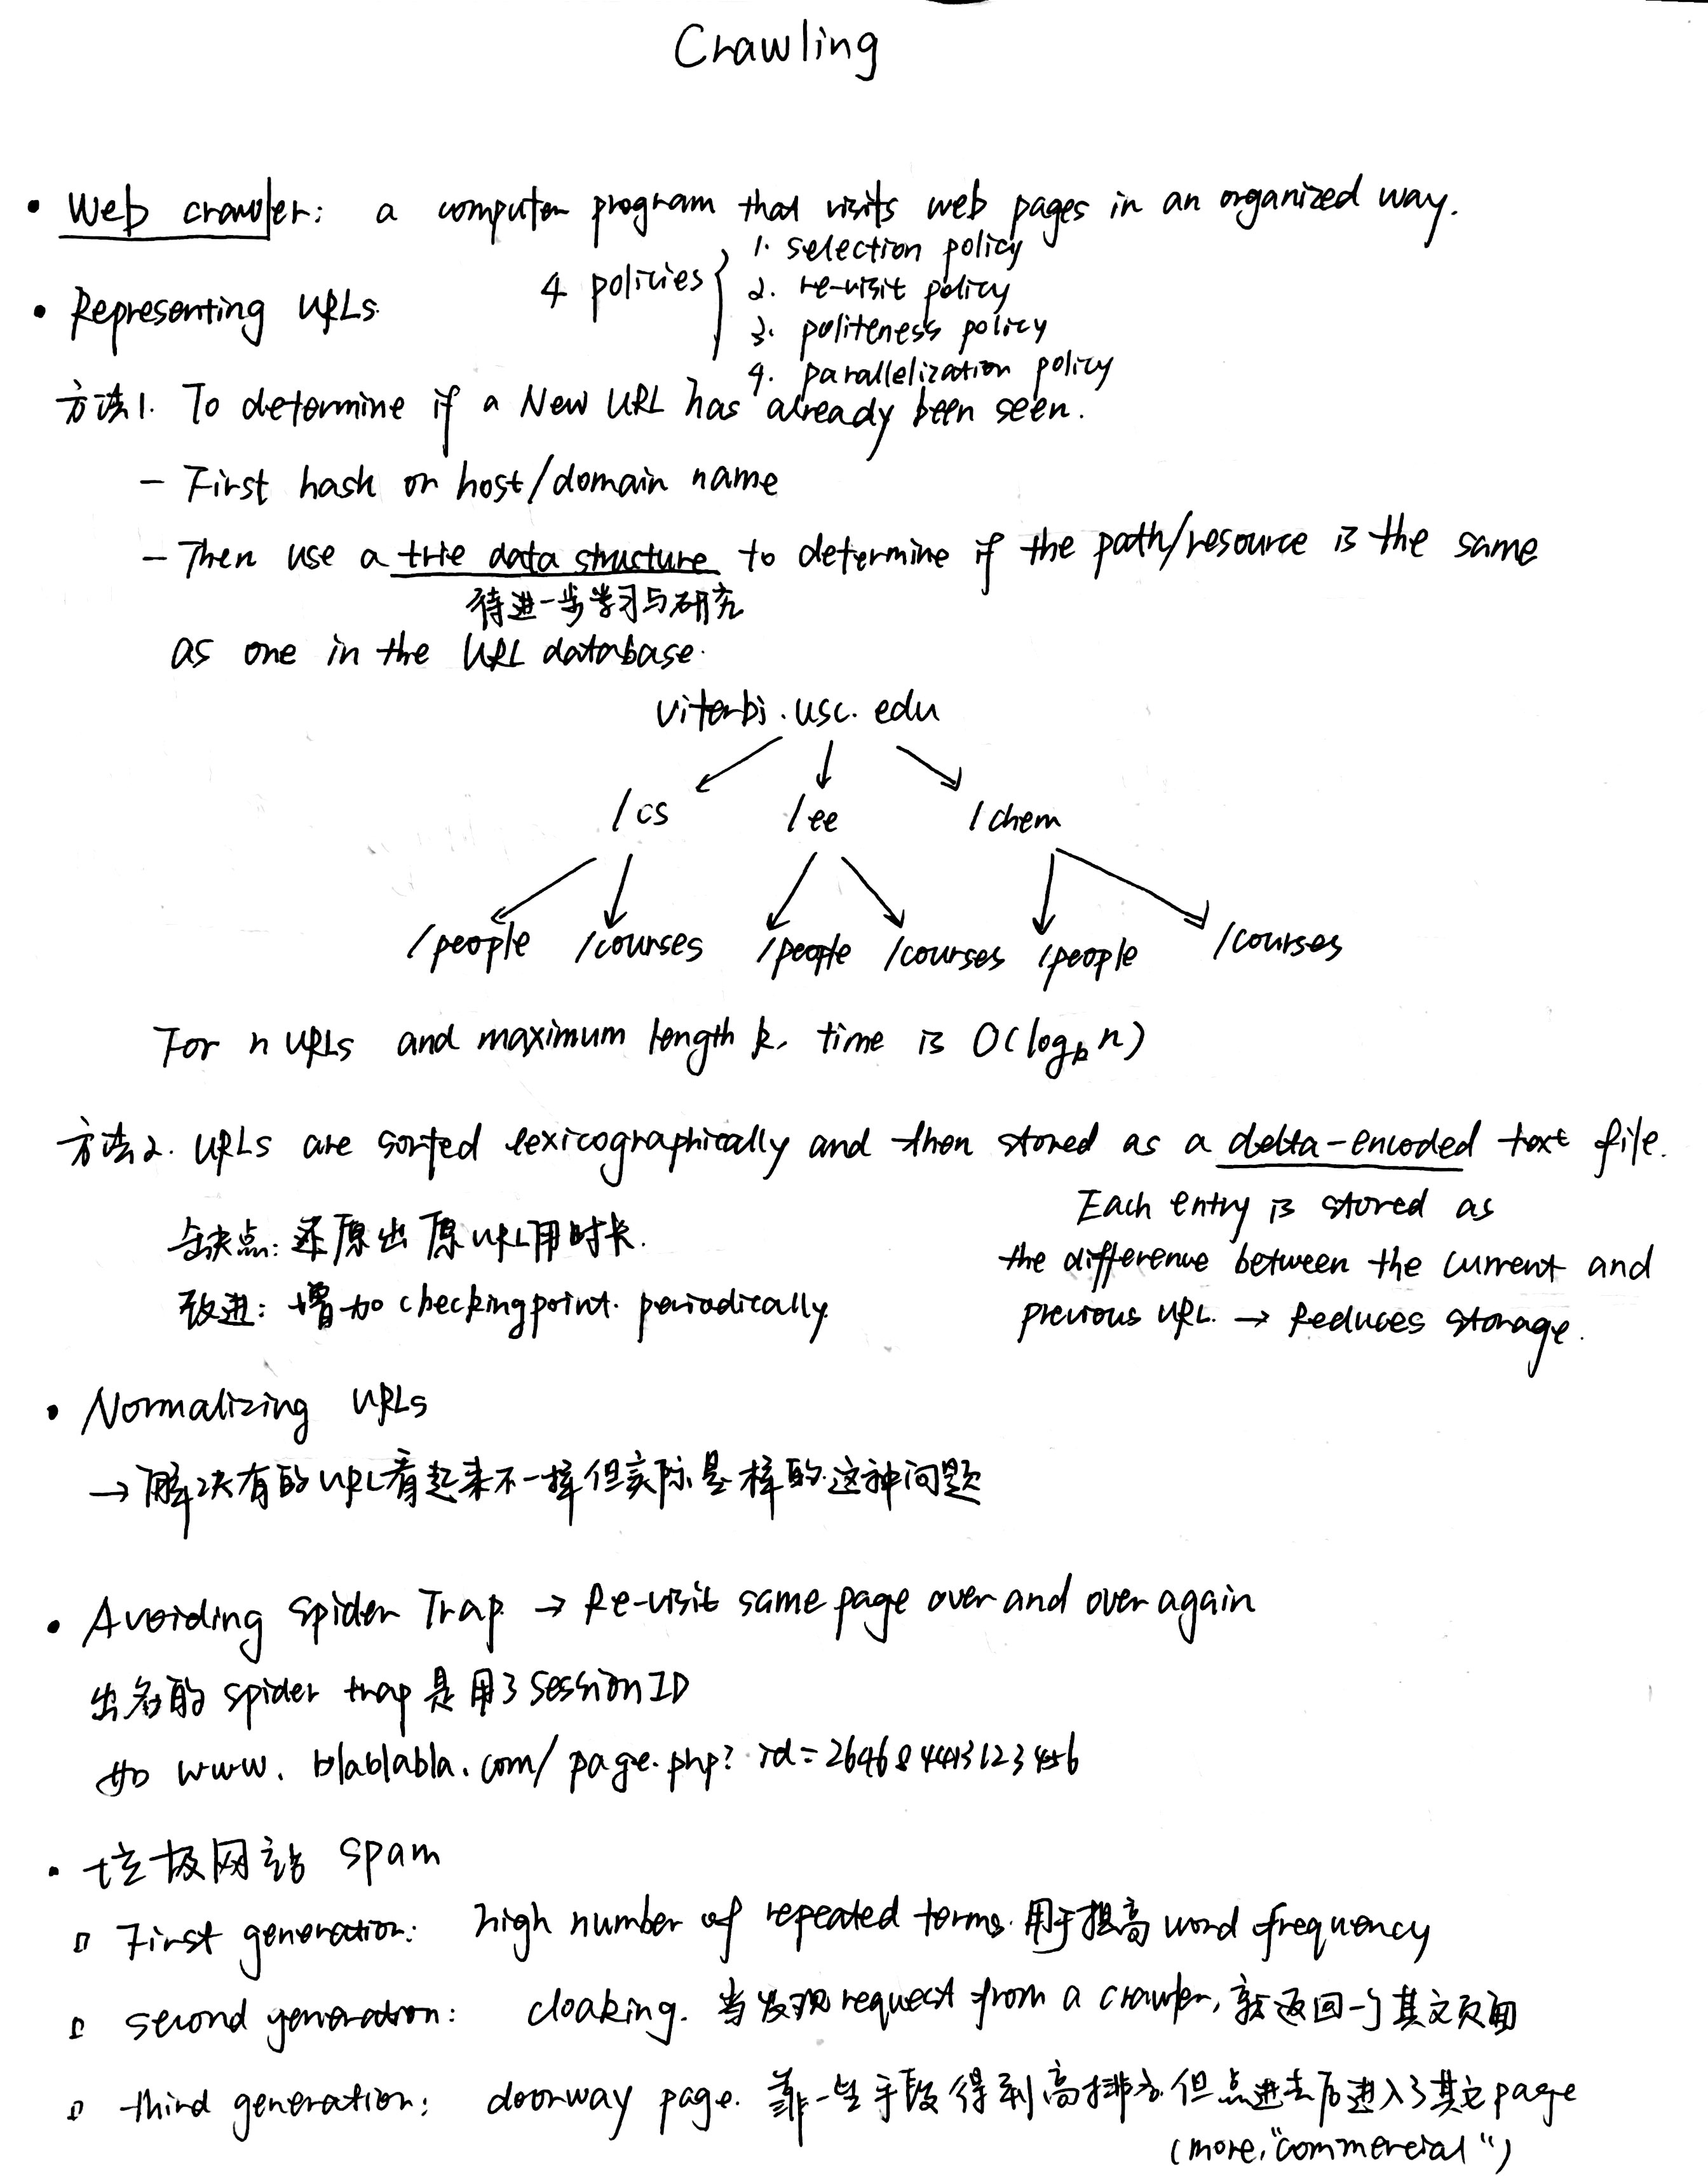 Crawling
• Web crawler: a computer program that visits web pages in an organized way.
4 policies { 1. selection policy
2. re-visit policy
3. politeness policy
4. parallelization policy
• Representing URLs.
方法1. To determine if a New URL has already been seen.
- First hash on host/domain name
- Then use a trie data structure to determine if the path/resource is the same
待进一步学习与研究
as one in the URL database.
viterbi.usc.edu
/cs /ee /chem
/people /courses /people /courses /people /courses
For n URLs and maximum length k, time is O(log_k n)
方法2. URLs are sorted lexicographically and then stored as a delta-encoded text file.
Each entry is stored as
the difference between the current and
previous URL. → Reduces storage.
缺点: 还原出原URL用时长.
改进: 增加 checkingpoint periodically.
• Normalizing URLs
→ 解决有的URL看起来不一样但实际是一样的这种问题
• Avoiding Spider Trap → Re-visit same page over and over again
出名的 spider trap 是用了 Session ID
如 www.blablabla.com/page.php?id=
• 垃圾网站 spam
First generation: high number of repeated terms. 用于提高 word frequency
second generation: cloaking. 当发现 request from a crawler, 就返回一个其它页面
third generation: doorway page. 靠一些手段得到高排名 但点进去后进入了其它 page
(more "commercial")